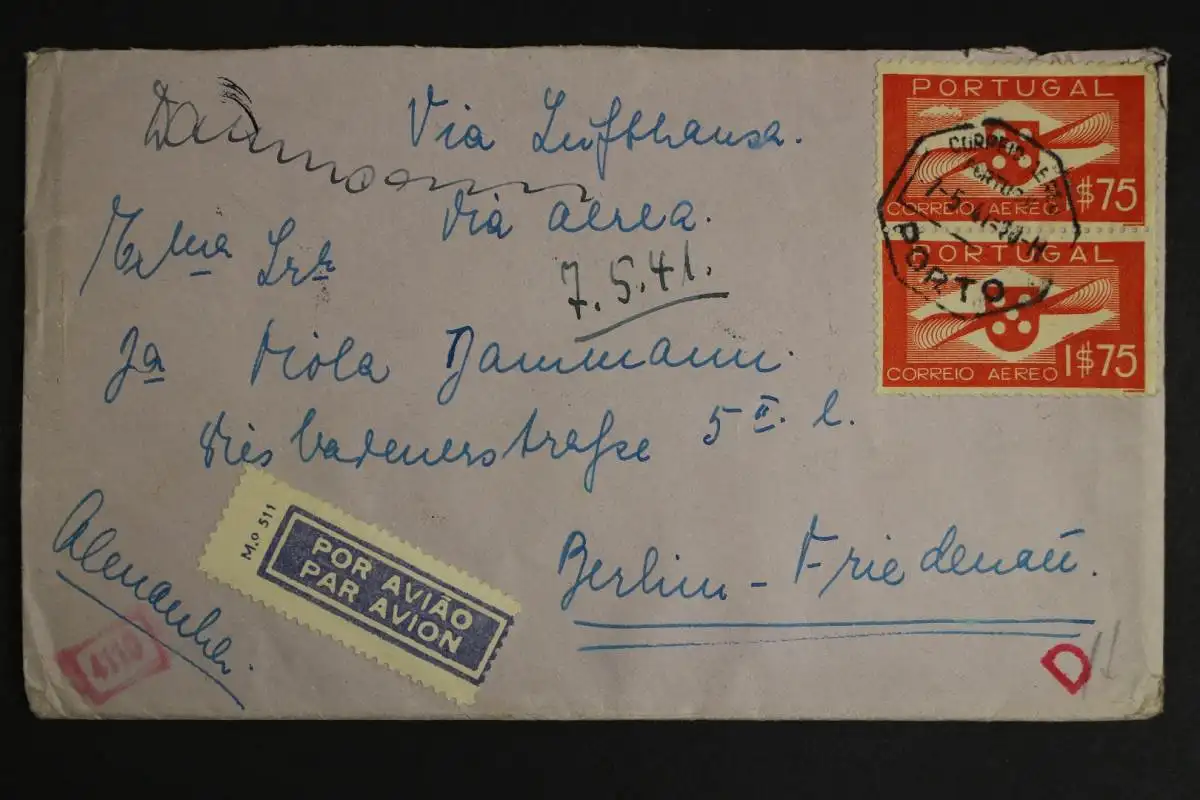 Dammann
Via Lufthansa.
via aerea.
7.5.41.
Viola Dammann.
Wiesbadenerstraße 5 II. l.
Berlin - Friedenau.
Alemanha.
M.º 511
POR AVIÃO
PAR AVION
4110
D
PORTUGAL
CORREIO AEREO 1$75
PORTUGAL
CORREIO AEREO 1$75
CORREIO AEREO
PORTUGAL
PORTO